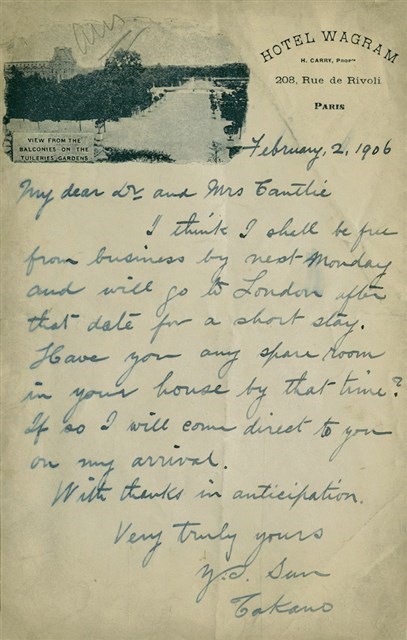 Ans
HOTEL WAGRAM
H. CARRY, Propre
208, Rue de Rivoli
PARIS
VIEW FROM THE
BALCONIES ON THE
TUILERIES GARDENS
February, 2, 1906
My dear Dr. and Mrs Cantlie
I think I shell be free
from business by next Monday
and will go to London after
that date for a short stay.
Have you any spare room
in your house by that time?
If so I will come direct to you
on my arrival.
With thanks in anticipation.
Very truly yours
Y.S. Sun
Takano